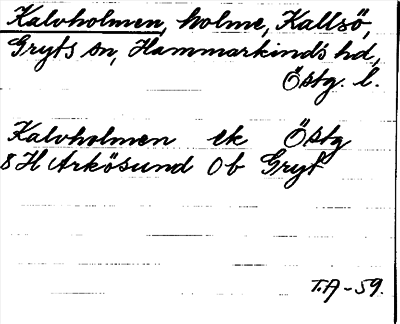 Kalvholmen, holme, Kallsö,
Gryts sn, Hammarkinds hd,
Östg. l.
Kalvholmen ek Östg
8 H Arkösund 0 b Gryt
T.A -59.